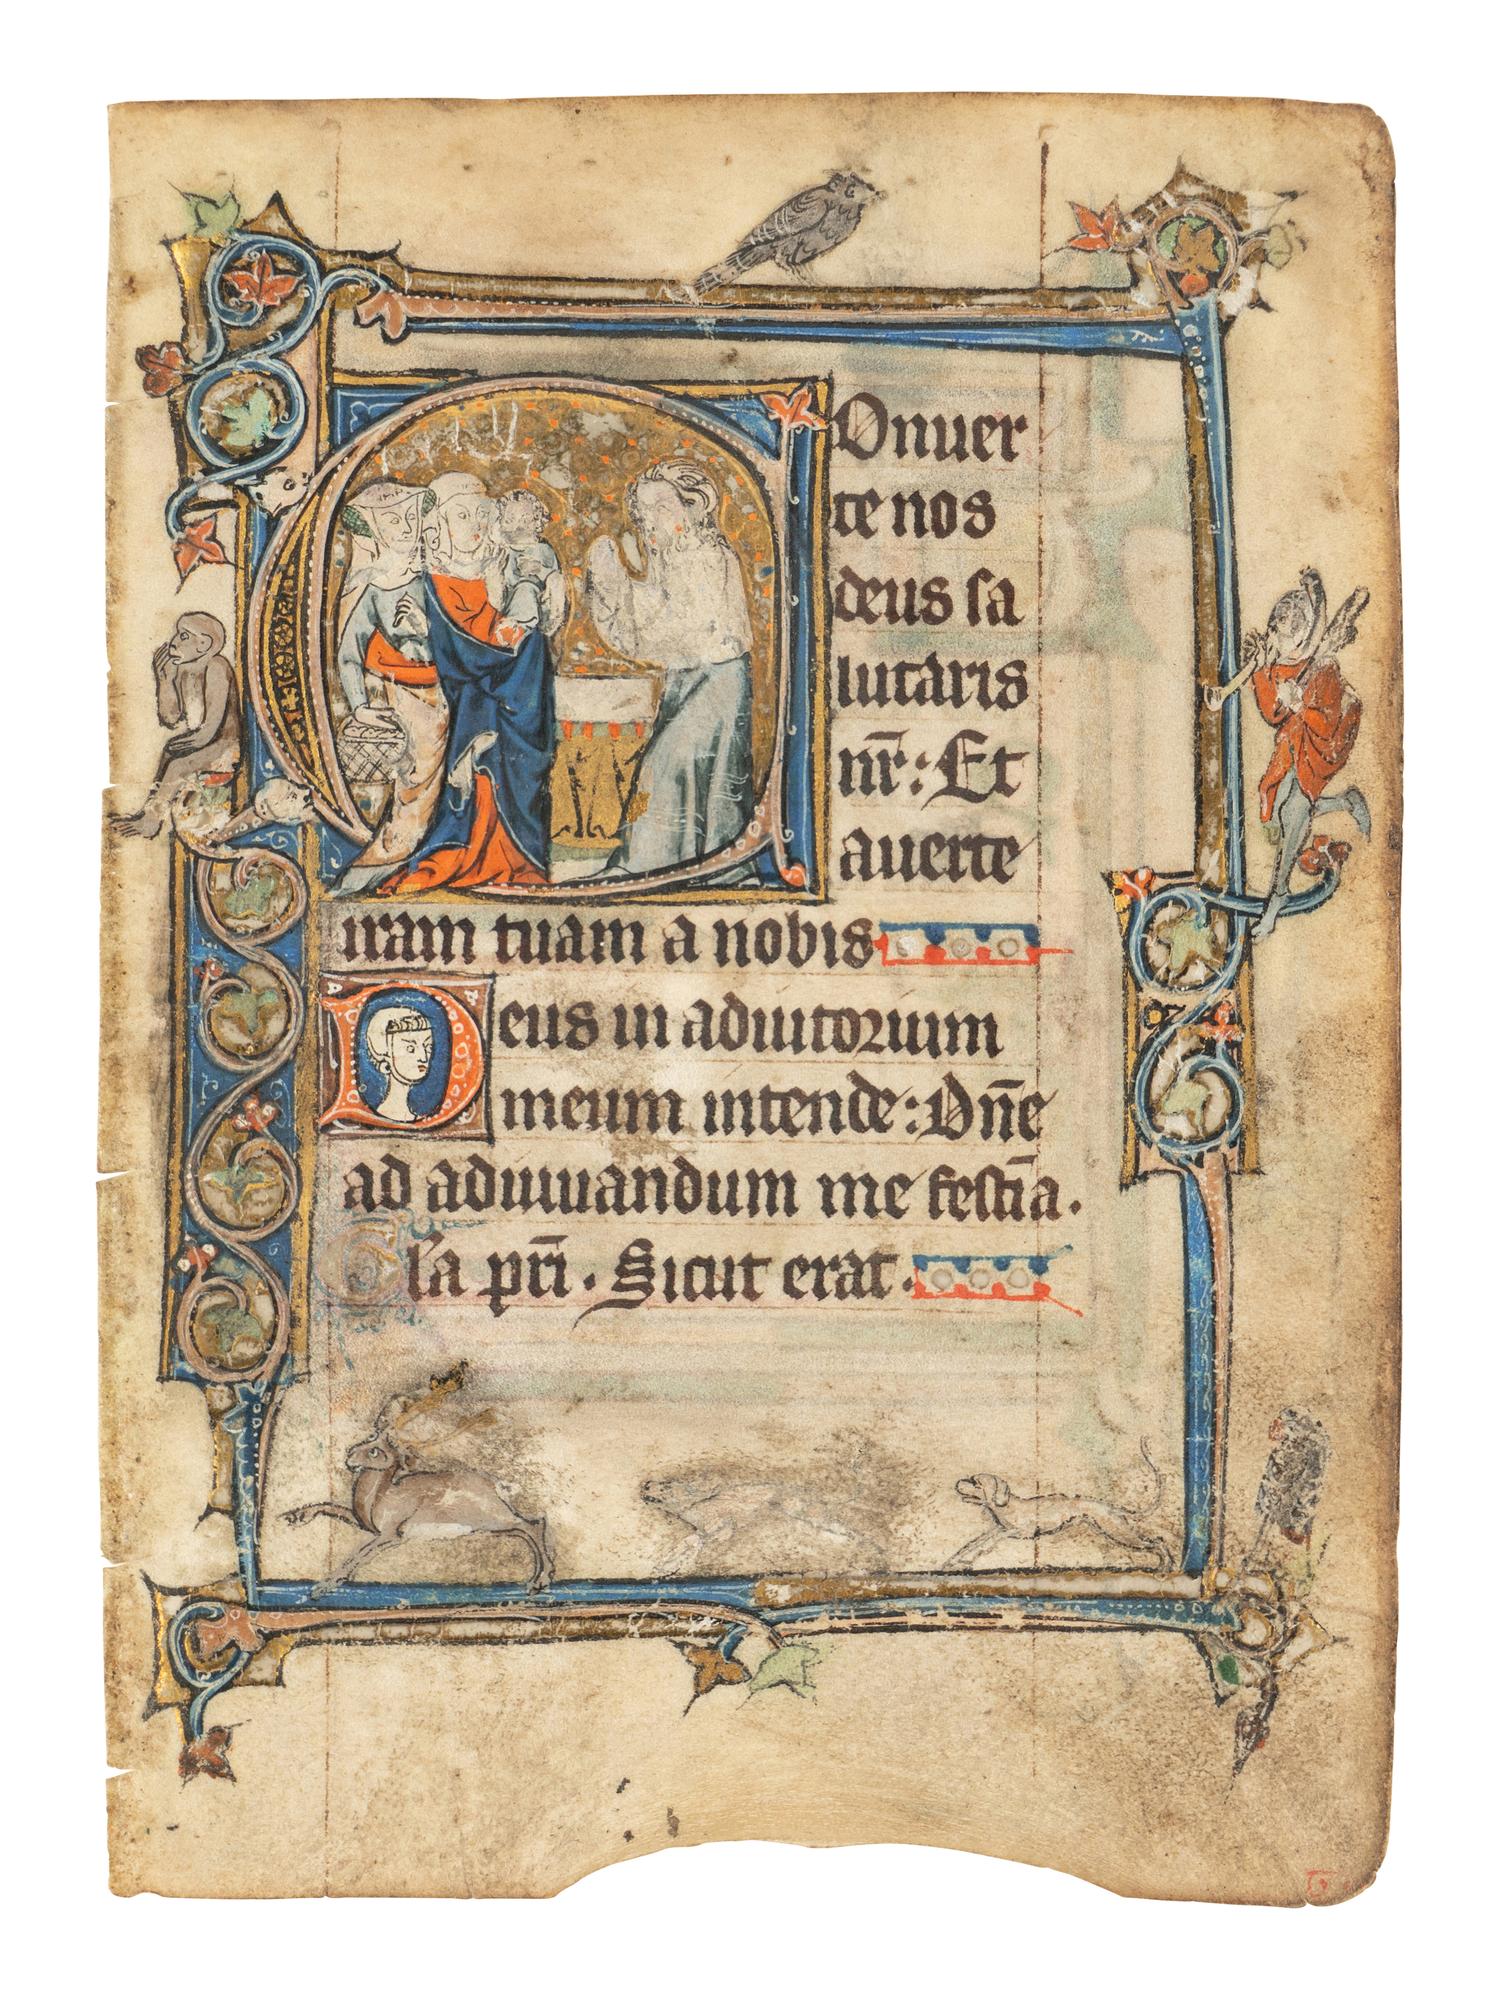 COnuer
te nos
deus sa
lutaris
nr̄: Et
auerte
iram tuam a nobis
Deus in adiutorium
meum intende: Dn̄e
ad adiuuandum me festīa.
Gl'a pr̄i. Sicut erat.